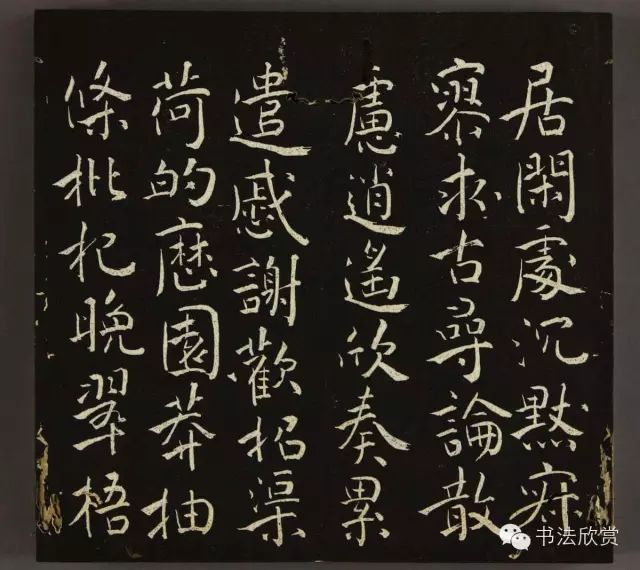 居閑處沉默寂
寥求古尋論散
慮逍遙欣奏累
遣慼謝歡招渠
荷的歷園莽抽
條枇杷晚翠梧
书法欣赏